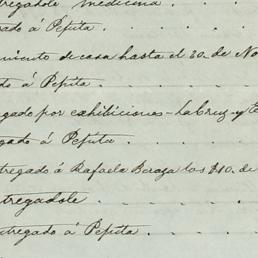 tregadole medicina . . .
gado á Pepita . . . .
miento de casa hasta el 30. de No
do á Pepita . . . .
egado por exhibiciones - La Cruz - y
egado á Pepita . . . .
tregado á Rafaela Beraza los $10. de
tregadole . . . .
ntregado á Pepita . . . .